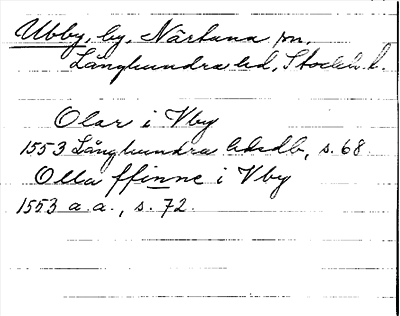 Ubby, by, Närtuna sn,
Långhundra hd, Stockh. l.
Olar i Vby
1553 Långhundra hdsdb, s. 68.
Olla ffinne i Vby
1553 a. a., s. 72.